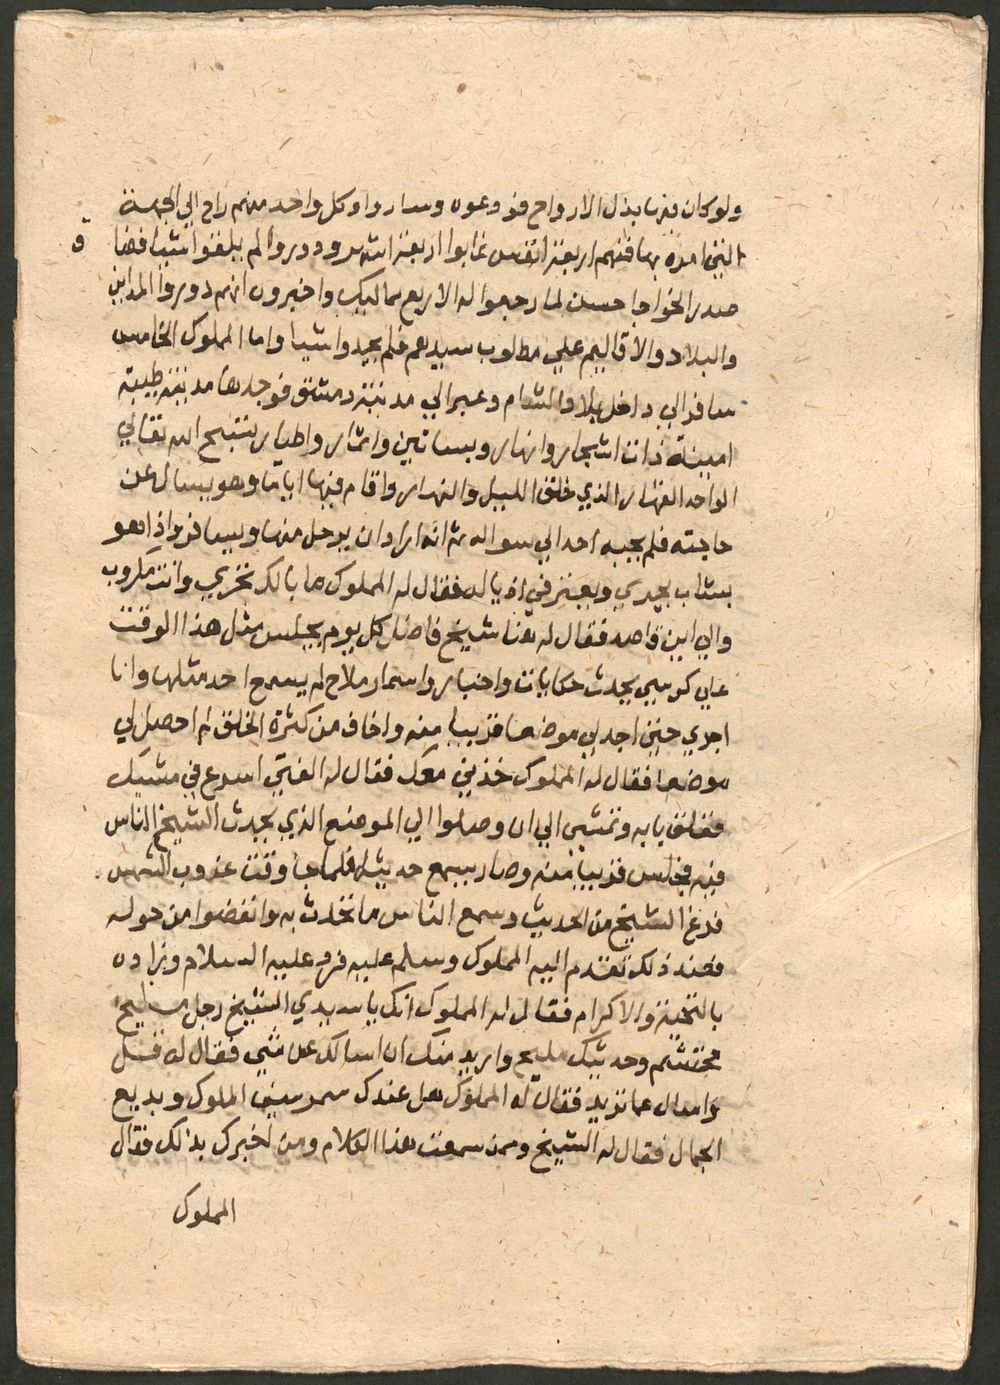 ولو كان فيها بذل الارواح فودعوه وساروا وكل واحد منهم راح الي الجهة
التي امره بها فمنهم اربعة انفس غابوا اربعة اشهر ودوروا لم يلقوا شيا فضا
ق
صدر الخواجا حسن لما رجعوا له الاربع مماليك واخبروه انهم دوروا المداين
والبلاد والاقاليم علي مطلوب سيدهم فلم يجدوا شيا واما المملوك الخامس
سافر الي داخل بلاد الشام وعبر الي مدينة دمشق فوجدها مدينة طيبة
امينة ذات اشجار وانهار وبساتين واثمار واطيار تسبح الله تعالي
الواحد القهار الذي خلق الليل والنهار واقام فيها اياما وهو يسال عن
حاجته فلم يجبه احد الي سواله ثم انه اراد ان يرحل منها ويسافر واذا هو
بشاب يجري ويعتر في اذياله فقال له المملوك ما بالك تجري وانت مكروب
والي اين قاصد فقال له هنا شيخ فاضل كل يوم يجلس مثل هذا الوقت
علي كرسي يحدث حكايات واخبار واسمار ملاح لم يسمع احد مثلها وانا
اجري حتي اجد لي موضعا قريبا منه واخاف من كثرة الخلق لم احصل لي
موضعا فقال له المملوك خذني معك فقال له الفتي اسرع في مشيك
فغلق بابه وتمشي الي ان وصلوا الي الموضع الذي يحدث الشيخ الناس
فيه فجلس قريبا منه وصار يسمع حديثه فلما جا وقت غروب الشمس
فرغ الشيخ من الحديث وسمع الناس ما تحدث به وانفضوا من حوله
فعند ذلك تقدم اليه المملوك وسلم عليه فرد عليه السلام وزاده
بالتحية والاكرام فقال له المملوك انك يا سيدي الشيخ رجل مليح
محتشم وحديثك مليح واريد منك ان اسالك عن شي فقال له قل
واسال عما تريد فقال له المملوك هل عندك سمر سيف الملوك وبديع
الجمال فقال له الشيخ وممن سمعت هذا الكلام ومن اخبرك بذلك فقال
المملوك